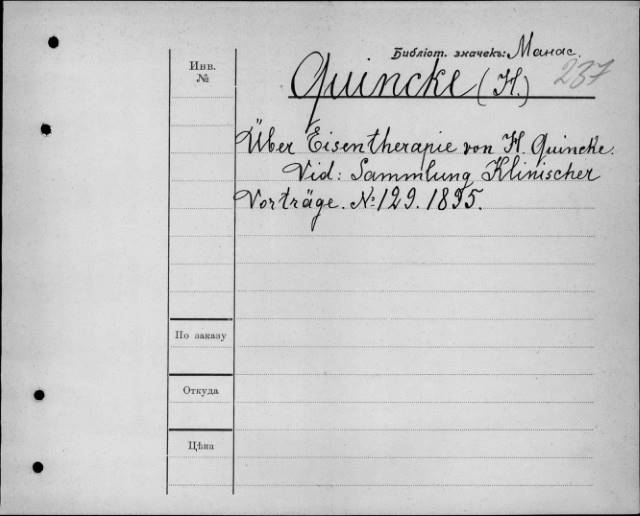 Библіот. значекъ: Манас.
Инв.
№
Quincke (H.) 237
Über Eisentherapie von H. Quincke.
Vid: Sammlung Klinischer
Vorträge. №: 129. 1895.
По заказу
Откуда
Цѣна